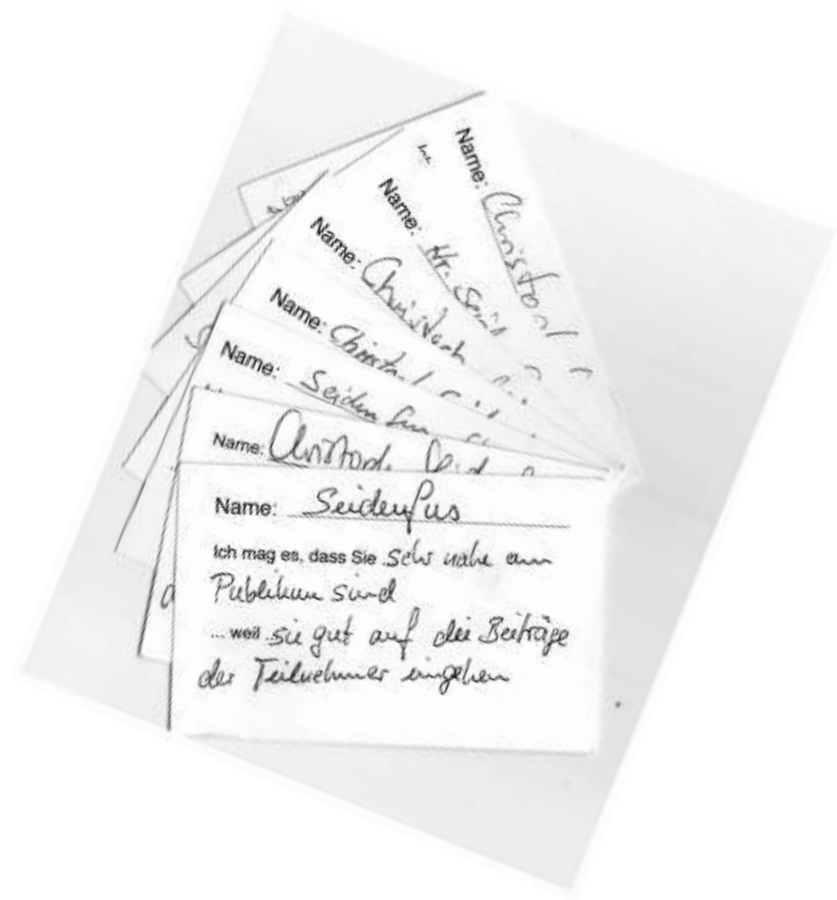 Name: Christoph
Name: Hr. Seid
Name: Christoph
Name: Christoph
Name: Seidenfus
Name: Christoph Seid
Name: Seidenfus
Ich mag es, dass Sie sehr nahe am
Publikum sind
... weil sie gut auf die Beiträge
der Teilnehmer eingehen